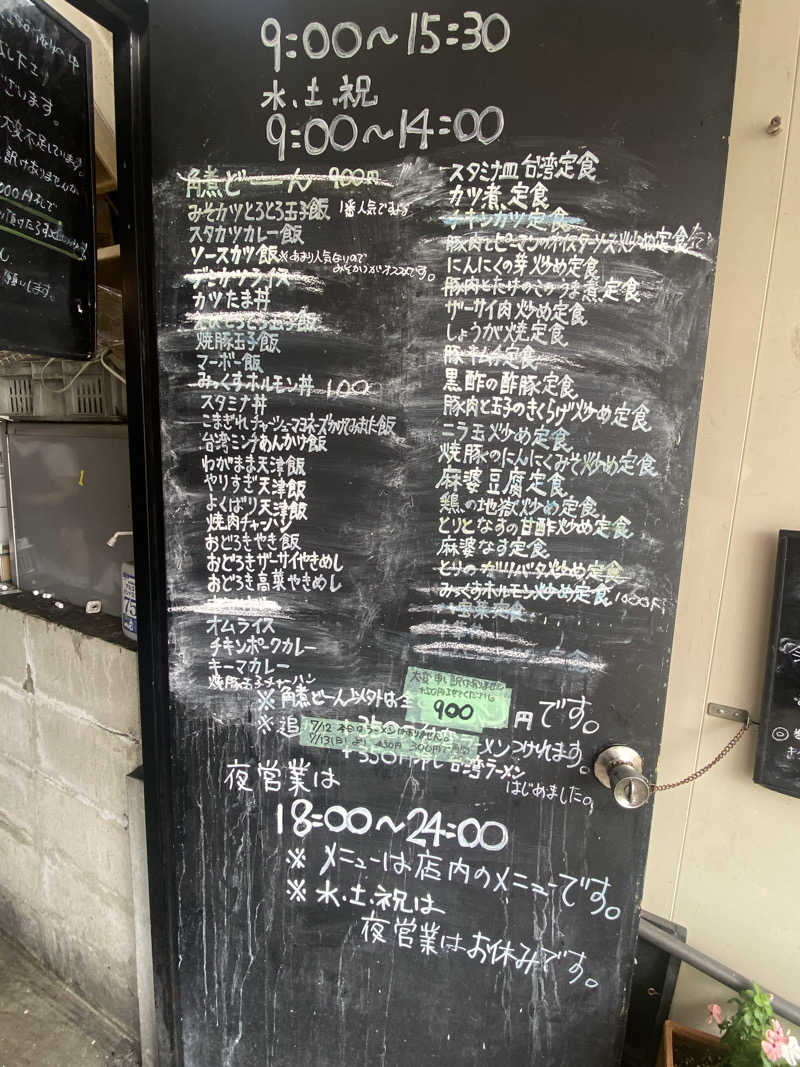 ございます。
大変不足しています。
9:00〜15:30
水、土、祝
9:00〜14:00
角煮どーん 900円
みそカツとろとろ玉子飯 1番人気です
スタカツカレー飯
ソースカツ飯 ※あまり人気ないので
みそカツがオススメです。
デミカツライス
カツたま丼
えびとろとろ玉子飯
焼豚玉子飯
マーボー飯
みっくすホルモン丼 1000
スタミナ丼
こまぎれチャーシューマヨネーズかけてみました飯
台湾ミンチあんかけ飯
わがまま天津飯
やりすぎ天津飯
よくばり天津飯
焼肉チャーハン
おどろきやき飯
おどろきザーサイやきめし
おどろき高菜やきめし
オムライス
チキンポークカレー
キーマカレー
焼豚玉子チャーハン
スタミナ皿 台湾定食
カツ煮定食
チキンカツ定食
豚肉とピーマンのオイスターソース炒め定食
にんにくの芽炒め定食
豚肉とたけのこのうま煮定食
ザーサイ肉炒め定食
しょうが焼定食
豚キムチ定食
黒酢の酢豚定食
豚肉と玉子のきくらげ炒め定食
ニラ玉炒め定食
焼豚のにんにくみそ炒め定食
麻婆豆腐定食
鶏の地獄炒め定食
とりとなすの甘酢炒め定食
麻婆なす定食
とりのガリバタ炒め定食
みっくすホルモン炒め定食 1000円
定食
※角煮どーん以外は全
大変申し訳ありません
900
円です。
※追
7/12 本日ラーメンはありません
7/13(日)
300円
ーメンつけれます。
台湾ラーメン
はじめました。
夜営業は
18:00〜24:00
※メニューは店内のメニューです。
※水、土、祝は
夜営業はお休みです。